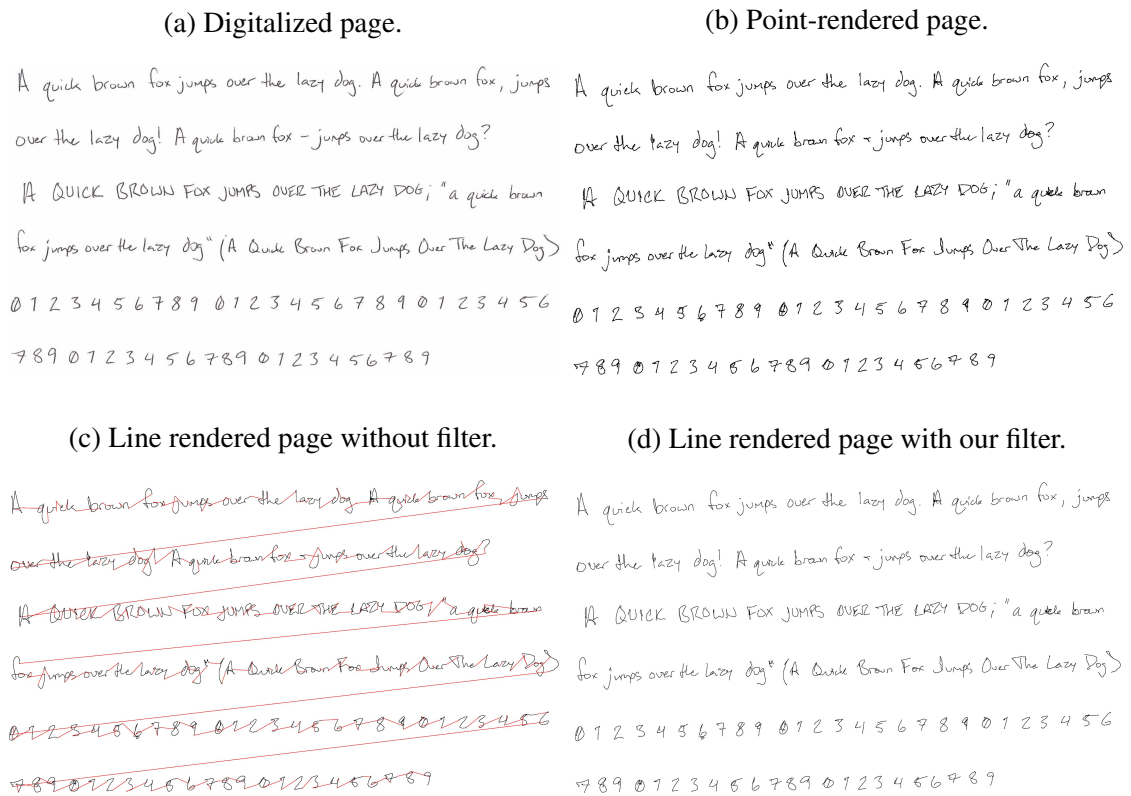 (a) Digitalized page.
A quick brown fox jumps over the lazy dog. A quick brown fox, jumps
over the lazy dog! A quick brown fox - jumps over the lazy dog?
A QUICK BROWN FOX JUMPS OVER THE LAZY DOG; "a quick brown
fox jumps over the lazy dog" (A Quick Brown Fox Jumps Over The Lazy Dog)
0 1 2 3 4 5 6 7 8 9 0 1 2 3 4 5 6 7 8 9 0 1 2 3 4 5 6
7 8 9 0 1 2 3 4 5 6 7 8 9 0 1 2 3 4 5 6 7 8 9
(b) Point-rendered page.
A quick brown fox jumps over the lazy dog. A quick brown fox, jumps
over the lazy dog! A quick brown fox - jumps over the lazy dog?
A QUICK BROWN FOX JUMPS OVER THE LAZY DOG; "a quick brown
fox jumps over the lazy dog" (A Quick Brown Fox Jumps Over The Lazy Dog)
0 1 2 3 4 5 6 7 8 9 0 1 2 3 4 5 6 7 8 9 0 1 2 3 4 5 6
7 8 9 0 1 2 3 4 5 6 7 8 9 0 1 2 3 4 5 6 7 8 9
(c) Line rendered page without filter.
A quick brown fox jumps over the lazy dog. A quick brown fox, jumps
over the lazy dog! A quick brown fox - jumps over the lazy dog?
A QUICK BROWN FOX JUMPS OVER THE LAZY DOG; "a quick brown
fox jumps over the lazy dog" (A Quick Brown Fox Jumps Over The Lazy Dog)
0 1 2 3 4 5 6 7 8 9 0 1 2 3 4 5 6 7 8 9 0 1 2 3 4 5 6
7 8 9 0 1 2 3 4 5 6 7 8 9 0 1 2 3 4 5 6 7 8 9
(d) Line rendered page with our filter.
A quick brown fox jumps over the lazy dog. A quick brown fox, jumps
over the lazy dog! A quick brown fox - jumps over the lazy dog?
A QUICK BROWN FOX JUMPS OVER THE LAZY DOG; "a quick brown
fox jumps over the lazy dog" (A Quick Brown Fox Jumps Over The Lazy Dog)
0 1 2 3 4 5 6 7 8 9 0 1 2 3 4 5 6 7 8 9 0 1 2 3 4 5 6
7 8 9 0 1 2 3 4 5 6 7 8 9 0 1 2 3 4 5 6 7 8 9